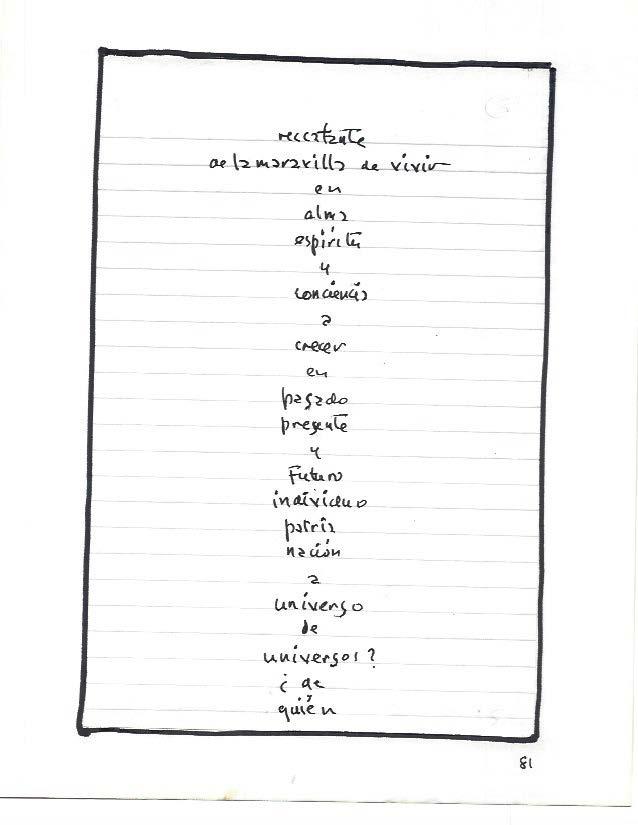 rescatante
de la maravilla de vivir
en
alma
espíritu
y
conciencia
a
crecer
en
pasado
presente
y
Futuro
individuo
patria
nación
a
universo
de
universos?
¿ de
quién
81